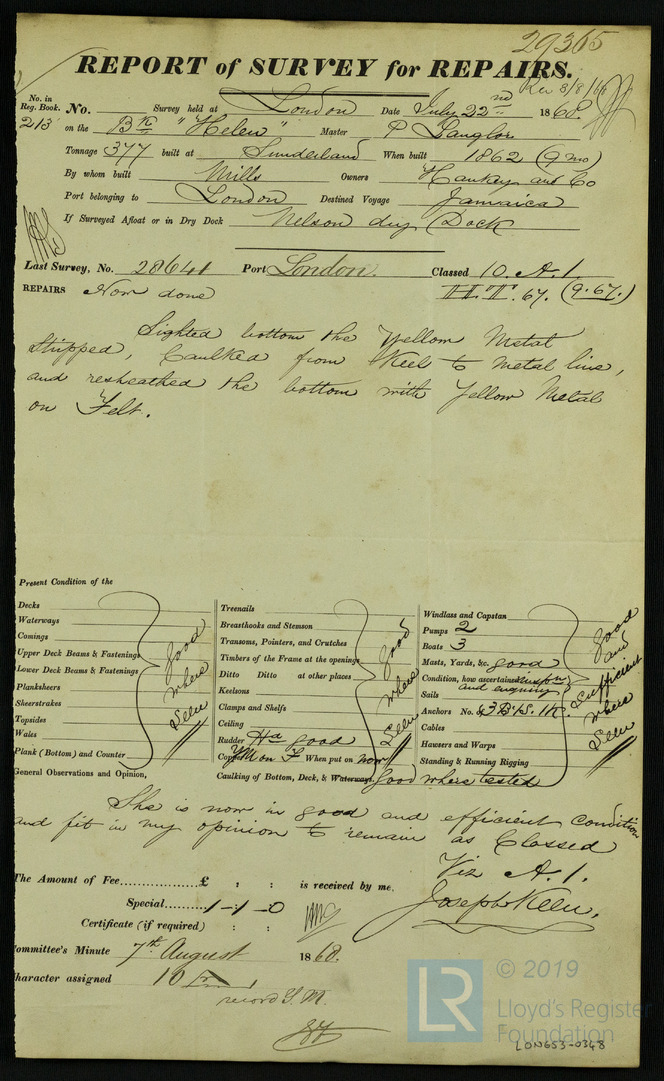 29365
REPORT of SURVEY for REPAIRS.
Rec 8/8/68
No. in Reg. Book. No. Survey held at London Date July 22nd 1868
213 on the Bk "Helen" Master P Langlois
Tonnage 377 built at Sunderland When built 1862 (9 mo)
By whom built Mills Owners Hankey and Co
Port belonging to London Destined Voyage Jamaica
If Surveyed Afloat or in Dry Dock Nelson dry Dock
Last Survey, No. 28641 Port London. Classed 10. A.1.
REPAIRS Now done 67. (9.67.)
Sighted bottom the Yellow Metal
Stripped, Caulked from Keel to metal line,
and resheathed the bottom with Yellow Metal
on Felt.
Present Condition of the
Decks
Waterways
Comings
Upper Deck Beams & Fastenings
Lower Deck Beams & Fastenings
Planksheers
Sheerstrakes
Topsides
Wales
Plank (Bottom) and Counter
good where Seen
Treenails
Breasthooks and Stemson
Transoms, Pointers, and Crutches
Timbers of the Frame at the openings
Ditto Ditto at other places
Keelsons
Clamps and Shelfs
Ceiling
good where Seen
Rudder good
Copper YM on F When put on now
Caulking of Bottom, Deck, & Waterways good where tested
Windlass and Capstan
Pumps 2
Boats 3
Masts, Yards, &c. good
Condition, how ascertained
and enquiry
Sails
Anchors No. &
Cables
Hawsers and Warps
Standing & Running Rigging
good and Sufficient where Seen
General Observations and Opinion,
She is now in good and efficient condition
and fit in my opinion to remain as Classed
Viz A.1.
Joseph Keen.
The Amount of Fee £ : : is received by me,
Special 1-1-0
Certificate (if required) : :
Committee's Minute 7th August 1868.
Character assigned 10 A 1
record Y.M.
LR
© 2019
Lloyd's Register
Foundation
LON653-0348